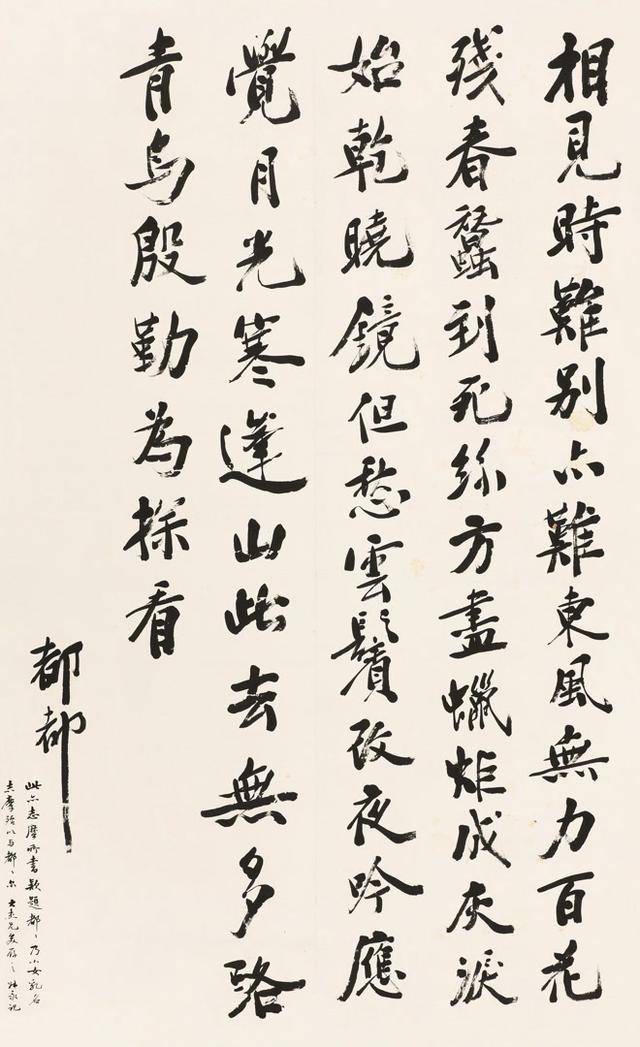 相見時難別亦難東風無力百花
殘春蠶到死絲方盡蠟炬成灰淚
始乾曉鏡但愁雲鬢改夜吟應
覺月光寒蓬山此去無多路
青鳥殷勤為探看
都都
此亦志摩所書款題都〻乃小女乳名
志摩以与都〻尔 大杰兄 永記